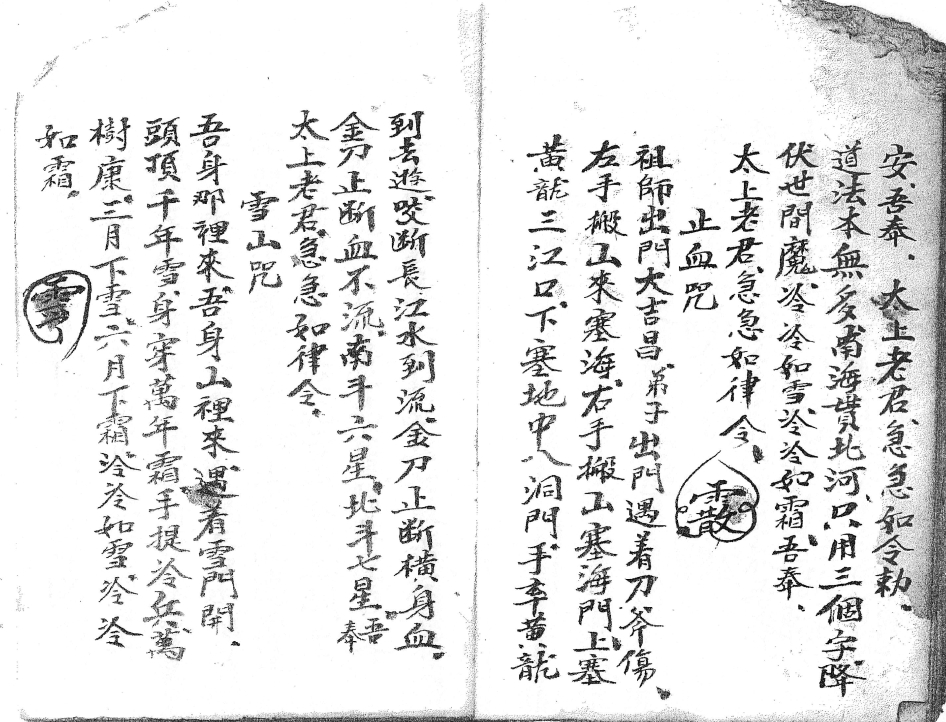 安、吾奉、太上老君、急急如令勅、
道法本無多、南海貫北河、只用三個字、降
伏世間魔、冷冷如雪、冷冷如霜、吾奉、
太上老君、急急如律令、
止血咒
祖師出門大吉昌、弟子出門遇着刀斧傷、
左手搬山來塞海、右手搬山塞海門、上塞
黃龍三江口、下塞地中八洞門、手牽黃龍
到去遊、咬断長江水到流、金刀止断橫身血、
金刀止断血不流、南斗六星、北斗七星、吾奉
太上老君、急急如律令、
雪山咒
吾身那裡來、吾身山裡來、遇着雪門開、
頭頂千年雪、身穿萬年霜、手提冷兵、萬
樹康、三月下雪、六月下霜、冷冷如雪、冷冷
如霜、